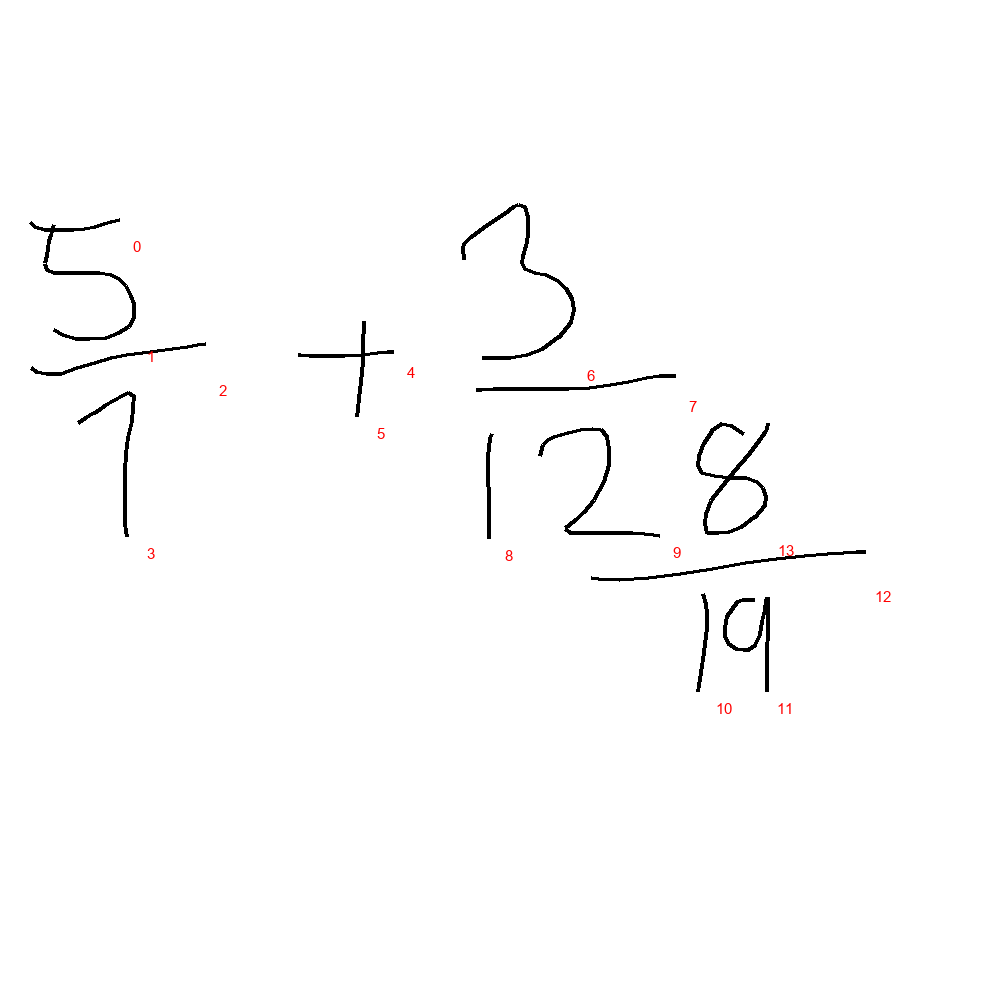 5/1 + 3/12 8/19
0 1 2 3 4 5 6 7 8 9 13 12 10 11